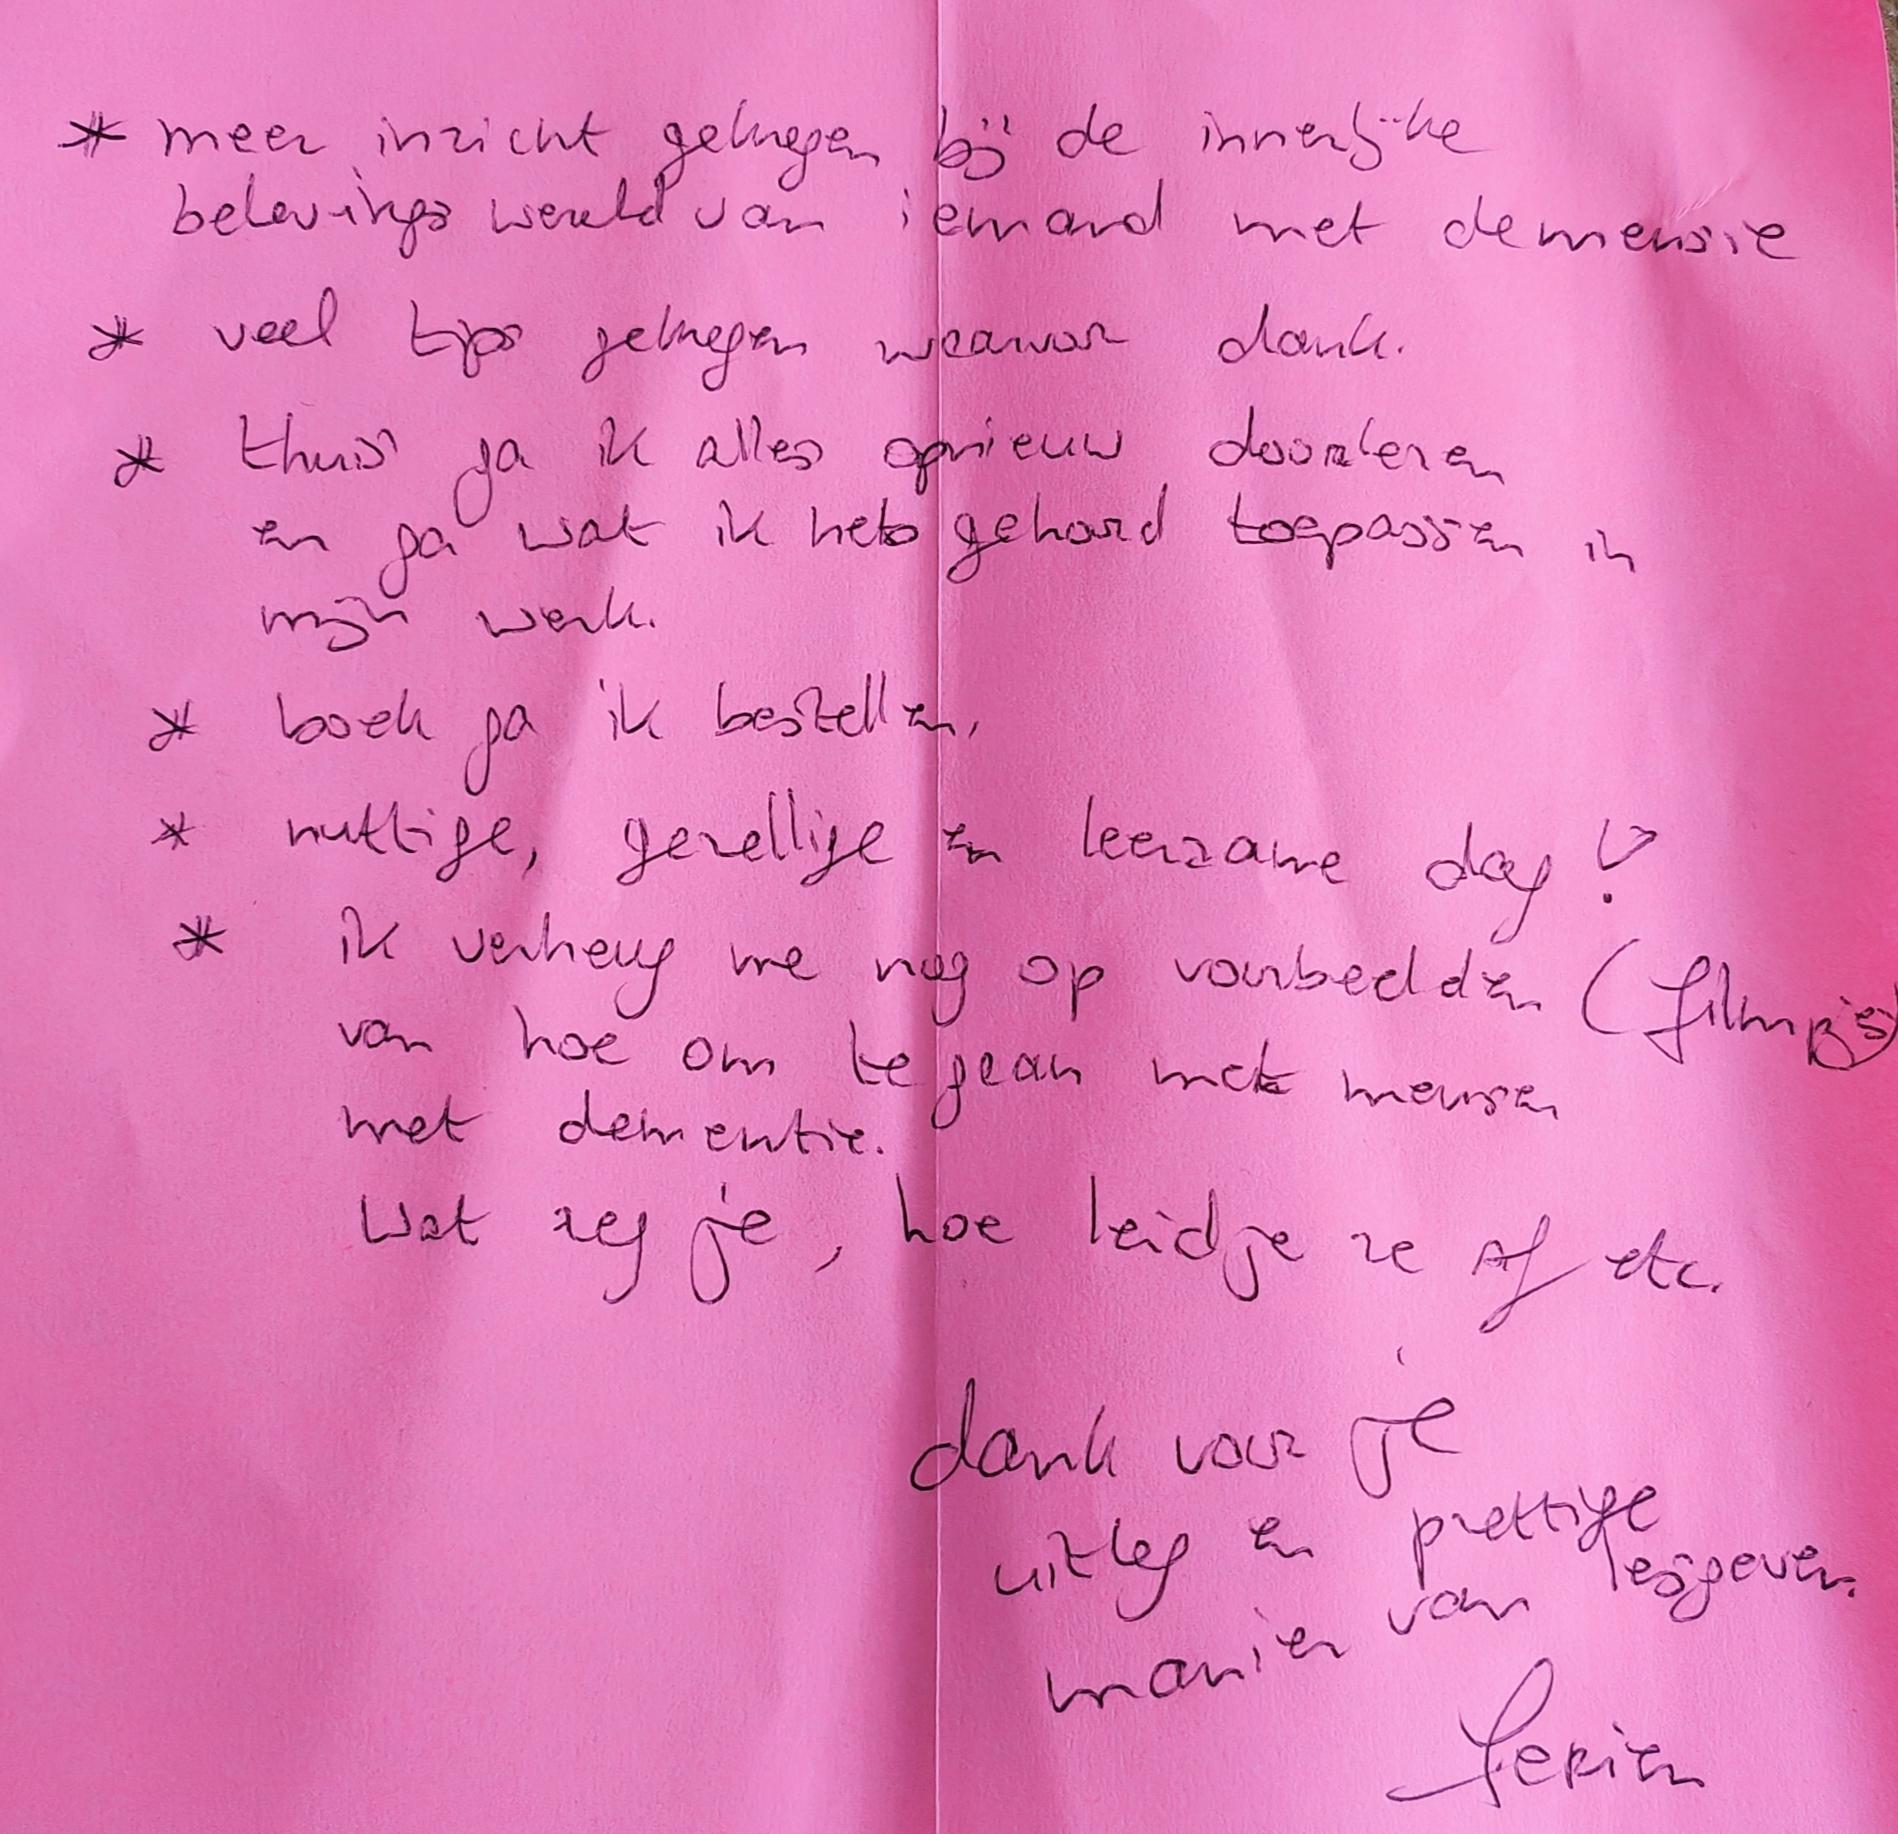 * meer inzicht gekregen bij de innerlijke
belevings wereld van iemand met demensie
* veel tips gekregen waarvoor dank.
* thuis ga ik alles opnieuw doorlezen
en ga wat ik heb gehoord toepassen in
mijn werk.
* boek ga ik bestellen.
* nuttige, gezellige en leerzame dag!
* ik verheug me nog op voorbeelden (filmpjes)
van hoe om te gaan met mensen
met dementie.
Wat zeg je, hoe leid je ze af etc.
dank voor je
uitleg en prettige
manier van lesgeven.